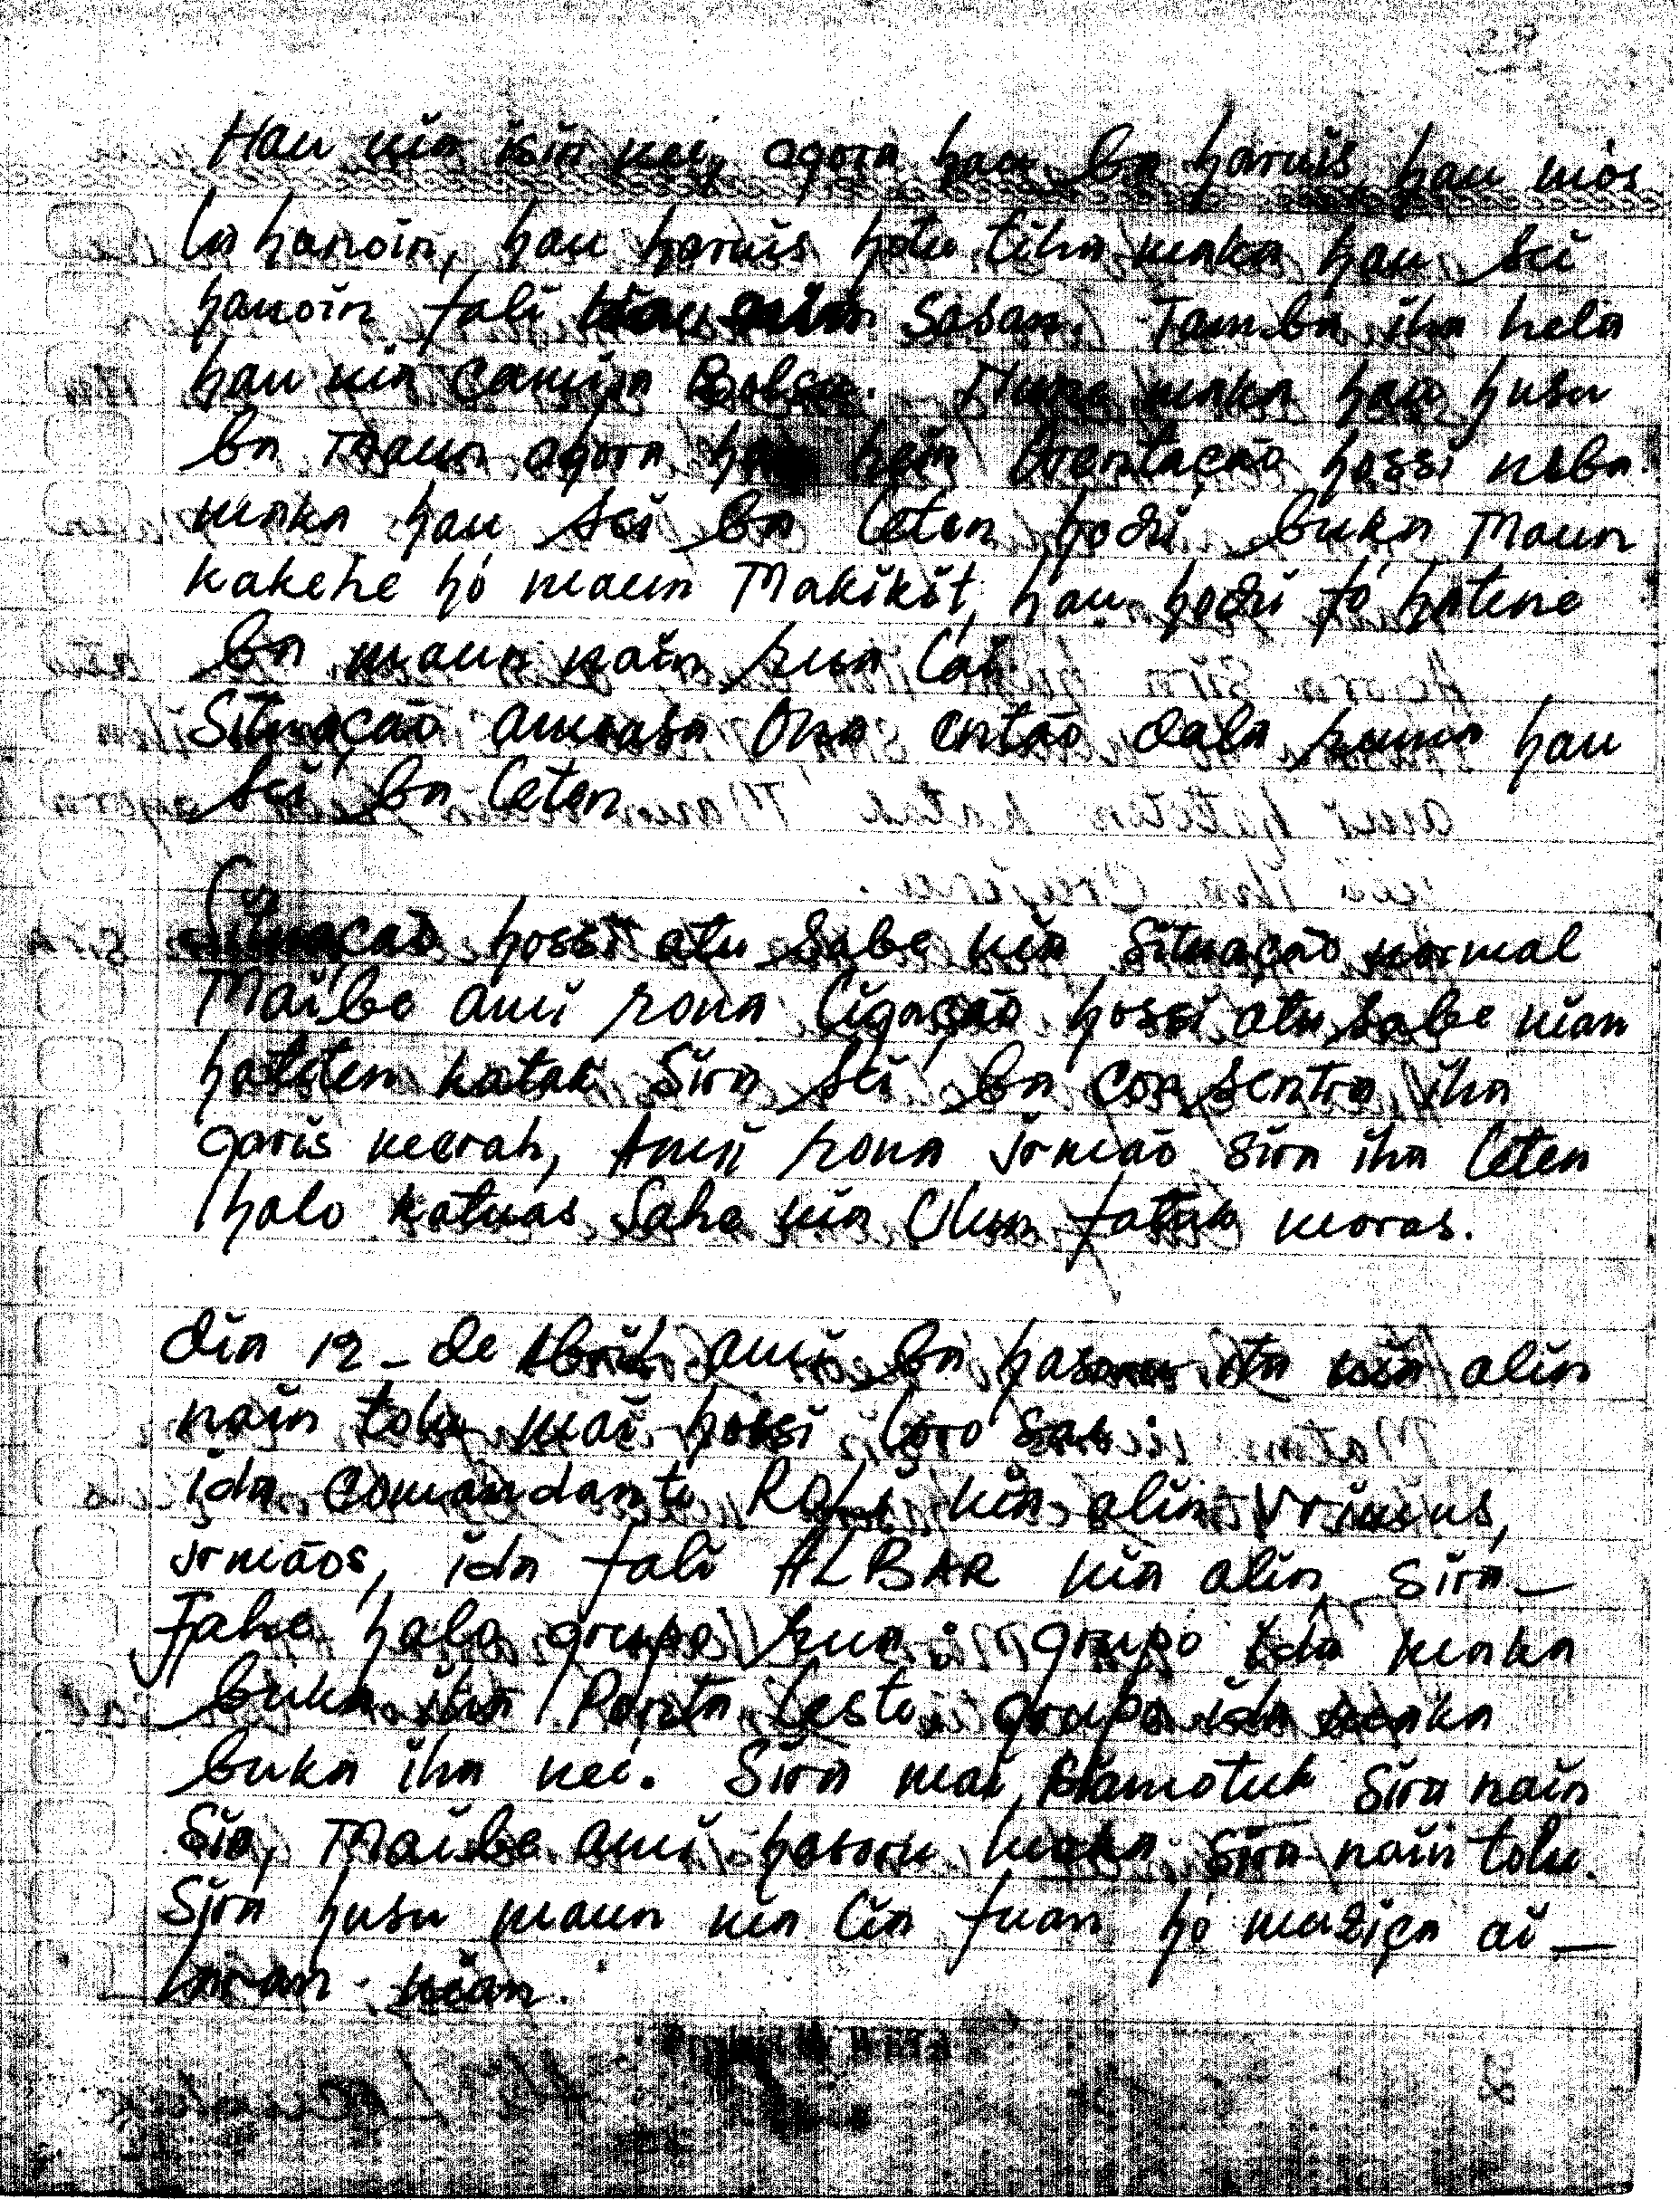 Hau nia isin nee, agora hau ba haruis, hau mós
la hanoin, hau haruis hotu tiha maka hau sei
hanoin fali sasan. Tamba iha hela
hau nia camija Bolsa. Nune maka hau husu
ba Maun agora hau hein Orentação hossi neba
maka hau sei ba leten hodi buka Maun
Kakehe hó maun Makikit, hau hodi fó hatene
ba maun nain rua lai.
Situação ameasa Ona então dala ruma hau
sei ba leten

Situação hossi atu sabe nia situação normal
Maibe ami rona ligação hossi atu sabe nian
hateten katak Sira sei ba consentra iha
garis merah, Ami rona irmão sira iha leten
halo katuas Sahe nia Ulun fatuk moras.

dia 12 - de Abril ami ba hasoru ita nia alin
nain tolu mai hossi loro Sae:
ida comandante Rofi nia alin Vrimus,
irmãos, ida fali ALBAR nia alin, Sira -
Fahe halo grupo rua: grupo ida maka
buka iha Ponta Leste, grupo ida maka
buka iha nee. Sira mai hamotuk Sira nain
Sia, Maibe ami hasoru maka Sira nain tolu.
Sira husu maun nia lia fuan hó muziça ai -
nian.
2